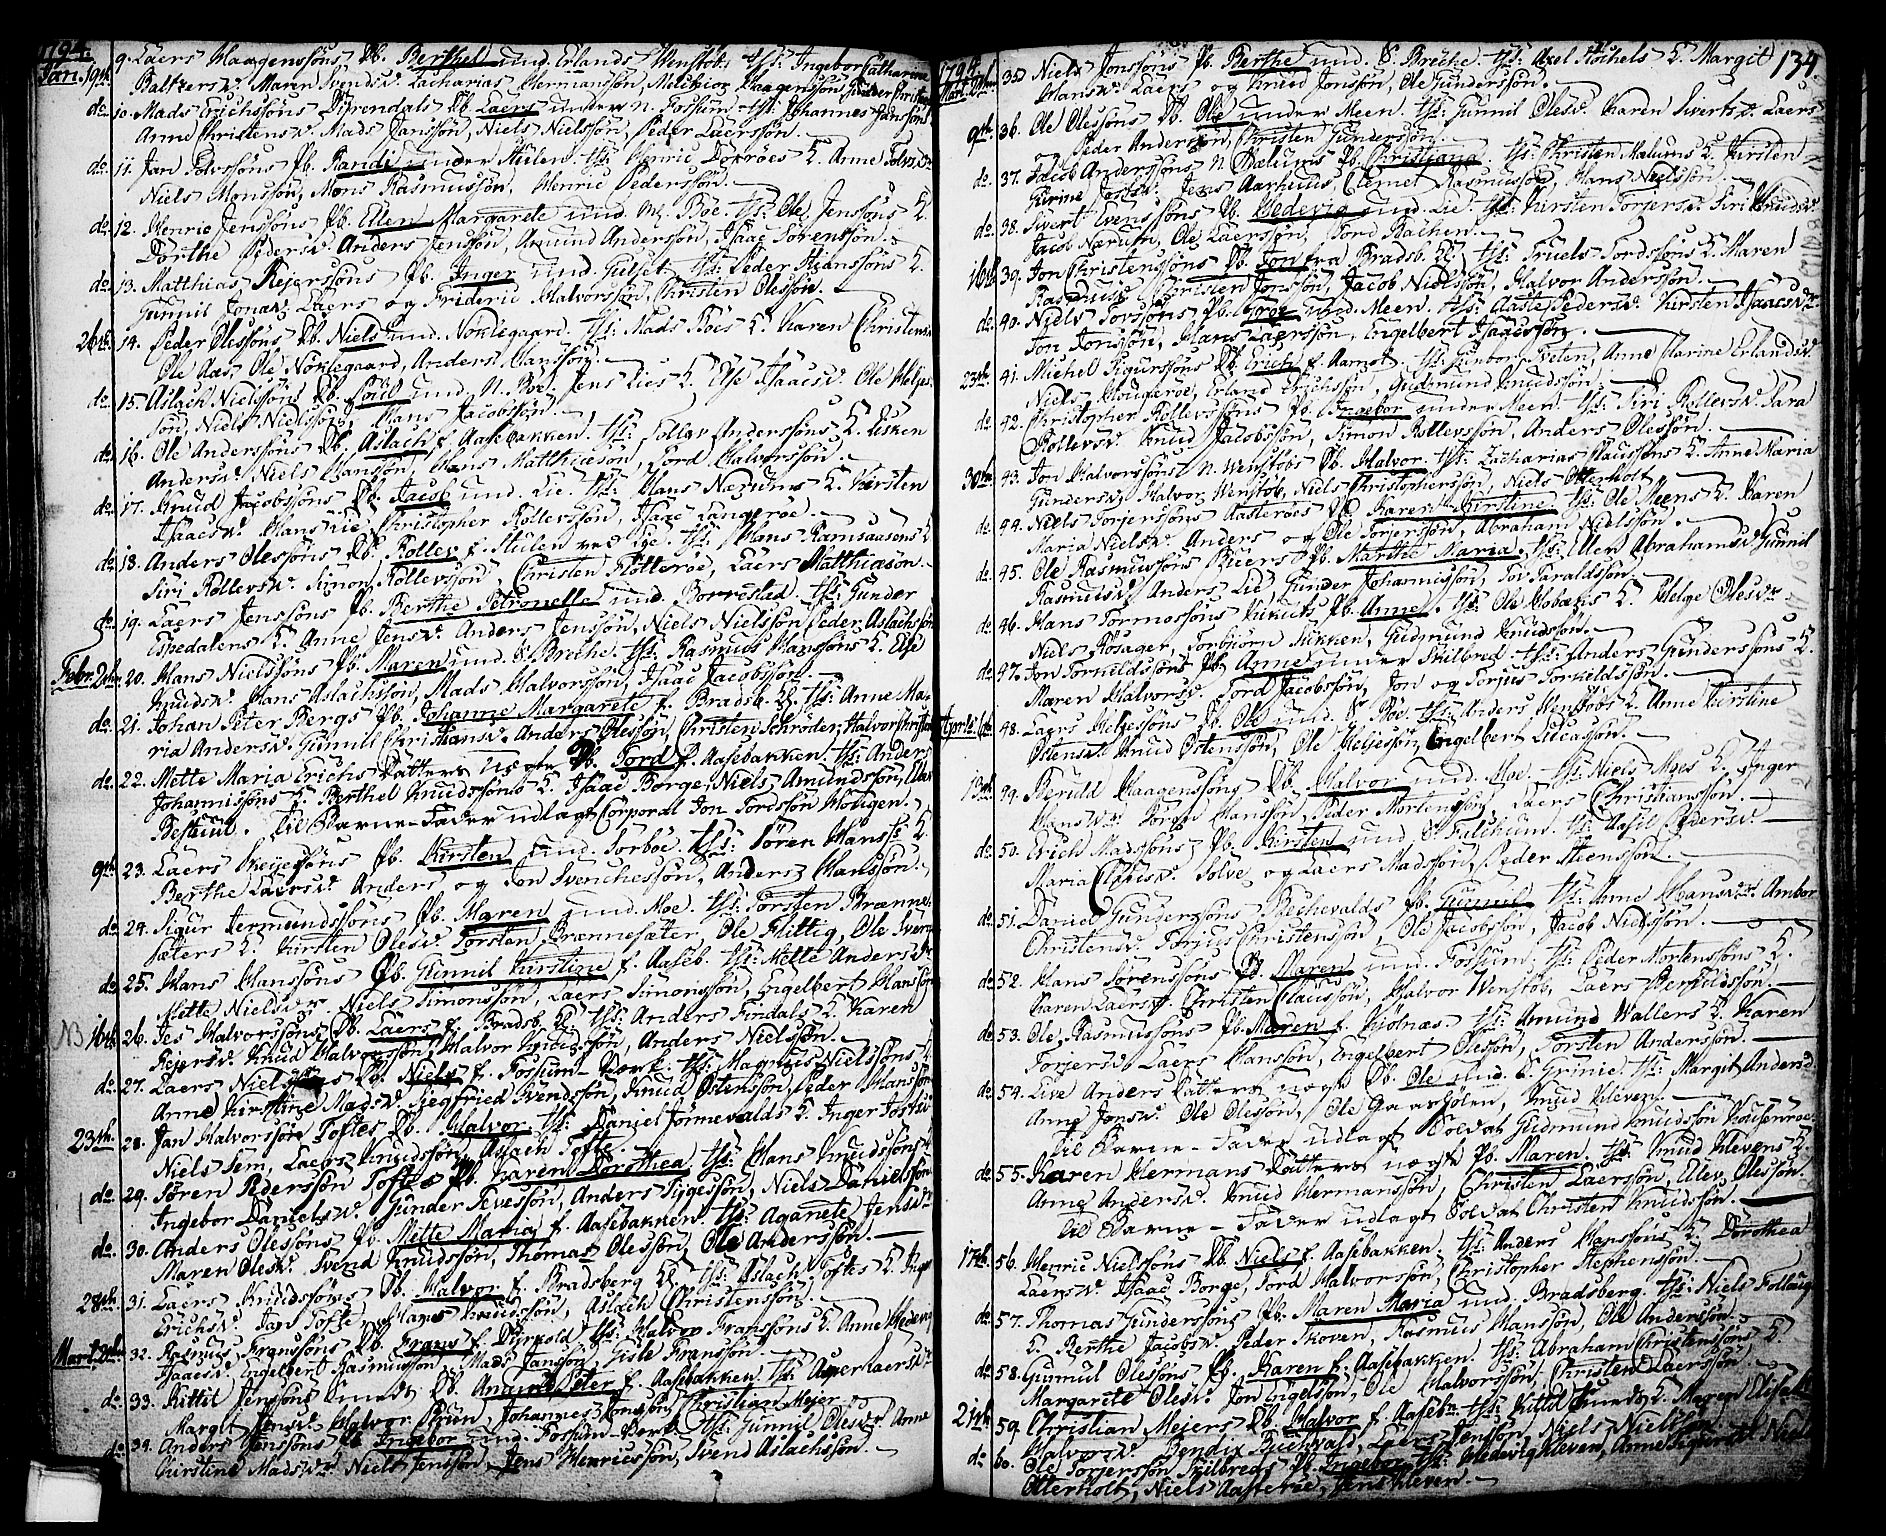 1794.
Jan. 19th. 9. Laers Haagenssøns Pb. Berthel und. Erlands Wenstøb. tsl: Ingebor Catharine
Baltzersdr. Maren Svendsdr. Zacharias Hermanssøn, Melchior Haagenssøn, Gunder
do. 10. Mads Erichssøns Dyrendals Pb. Laers under N. Fossum. tsl: Johannes Janssøns
Anne Christensdr. Mads Janssøn, Niels Nielssøn, Peder Laerssøn.
do. 11. Jan Tolvssøns Pb. Randi under Hulen. tsl: Henric Dokrøes K. Anne Tolvsdr.
Niels Monssøn, Mons Rasmussøn, Henric Pederssøn.
do. 12. Henric Jenssøns Pb. Ellen Margarete und. M. Bøe. tsl: Ole Jenssøns K.
Dorthe Pedersdr. Anders Jenssøn, Amund Anderssøn, Isaac Sørenssøn.
do. 13. Matthias Rejerssøns Pb. Inger und. Gulset. tsl: Peder Stianssøns K.
Gunnil Jonsdr. Laers og Frideric Halvorssøn, Christen Olessøn.
26th. 14. Peder Olessøns Pb. Niels und. Noklegaard. tsl: Mads Bøes K. Karen Christensdr.
Ole Aas, Ole Noklegaard, Anders Hanssøn.
do. 15. Aslach Nielssøns Pb. Povel und. N. Bøe. Jens Lies K. Else Isaacsdr. Ole Heljes
Tord, Niels Nielssøn, Hans Jacobssøn.
do. 16. Ole Anderssøns Pb. Aslach f. Aasebakken. tsl: Tollev Anderssøns K. Lisken
Andersdr. Niels Hanssøn, Hans Matthiasøn, Tord Halvorssøn.
do. 17. Knud Jacobssøns Pb. Jacob und. Lie. tsl: Hans Nærums K. Kirsten
Isaacsdr. Hans Lie, Christopher Rollevssøn, Isaac Langerøe.
do. 18. Anders Olessøns Pb. Rollev f. Hulen ved Lie. tsl: Hans Ramsaasens K.
Siri Rollevsdr. Simon Rollevssøn, Christen Flotterøe, Laers Matthiasøn.
do. 19. Laers Jenssøns Pb. Berthe Petronelle und. Borrestad. tsl: Gunder
Espedalens K. Anne Jensdr. Anders Jenssøn, Niels Nielssøn, Peder Aslachssøn
Febr. 2den. 20. Hans Nielssøns Pb. Maren und. S. Breche. tsl: Rasmus Hanssøns K. Else
Knudsdr. Hans Aslachssøn, Mads Halvorssøn, Isaac Jacobssøn.
do. 21. Johan Peter Bergs Pb. Johanne Margarete f. Bradsb. tsl: Anne Ma-
ria Andersdr. Gunnil Christiansdr. Anders Olessøn, Christen Schrøder, Halvor
do. 22. Mette Maria Erichs Datters Uægte Pb. Tord f. Aasebakken. tsl: Anders
Johannissøns K. Berthel Knudssøns K. Isaac Borge, Niels Amundssøn,
Bestuul. Til Barne-Fader udlagt Corporal Jon Tordssøn Kotigen.
9th. 23. Laers Heljessøns Pb. Kirsten und. Torbøe. tsl: Søren Hanss: K.
Berthe Laersdr. Anders og Jon Svenchessøn, Anders Hanssøn.
do. 24. Sigur Jermundssøns Pb. Maren und. Moe. tsl: Torsten Brænne-
sæters K. Kirsten Olesdr. Torsten Brænnesæter, Ole Flittig, Ole
do. 25. Hans Hanssøns Pb. Gunnil Kirstine f. Aaseb. tsl: Mette Andersdr.
Mette Nielsdr. Niels Simonssøn, Laers Simonssøn, Engelbert Hanssøn
NB 16th. 26. Jes Halvorssøns Pb. Laers f. Bradsb. tsl: Anders Findals K. Karen
Rejersdr. Knud Halvorssøn, Halvor Knudssøn, Anders Nielssøn.
do. 27. Laers Nielssøns Pb. Niels f. Fossum-Værk. tsl: Magnus Nielssøns K.
Anne Kirstine Madsdr. Siegfried Svendssøn, Knud Ostenssøn, Peder Hanssøn
23th. 28. Jan Halvorssøn Toftes Pb. Halvor. tsl: Daniel Jønnevalds K. Inger Jostsdr.
Niels Sem, Laers Knudssøn, Aslach Tofte.
do. 29. Søren Pederssøn Toftes Pb. Karen Dorothea. tsl: Hans Knudssøns K.
Ingebor Danielsdr. Gunder Sevessøn, Anders Tygessøn, Niels Danielssøn
do. 30. Anders Olessøns Pb. Mette Maria f. Aasebakken. tsl: Aganete Jensdr.
Maren Olesdr. Svend Knudssøn, Thomas Olessøn, Ole Anderssøn.
28th. 31. Laers Knudssøns Pb. Halvor f. Bradsberg. tsl: Aslach Toftes K.
Erichsdr. Jan Tofte, Hans Knudssøn, Aslach Christenssøn.
Mart. 2den 32. Rasmus Franssøns Pb. Frans f. Dyrkold. tsl: Halvor Franssøns K. Anne Hedevig
Isaacsdr. Engelbert Rasmussøn, Mads Janssøn, Gisle Franssøn.
do. 33. Kittil Jenssøns Pb. Amund Peter f. Aasebakken. tsl: Laersdr.
Margit Jensdr. Halvor Bruun, Johannes Jonssøn, Christian Meier.
do. 34. Anders Jenssøns Pb. Ingebor und. Fossum-Værk. tsl: Gunnil Olesdr. Anne
Kirstine Madsdr. Niels Jenssøn, Jens Henricssøn, Svend Aslachssøn.
134.
1794.
Mart. 2den 35. Niels Jonssøns Pb. Berthe und. S. Breche. tsl: Axel Støchels K. Margit
Hansdr. Laers og Knud Jonssøn, Ole Gunderssøn.
9th. 36. Ole Olessøns Pb. Ole under Meen. tsl: Gunnil Olesdr. Karen Sivertsdr. Laers
Peder Anderssøn, Christen Gunderssøn.
do. 37. Jacob Anderssøns N. Mælums Pb. Christiana. tsl: Christen Mælums K. Kirsten
Gurine Jonsdr. Jens Aarhuus, Clemet Rasmussøn, Hans Nielssøn.
do. 38. Sivert Evenssøns Pb. Hedevig und. Lie. tsl: Kirsten Torjersdr. Siri Knudsdr.
Jacob Nærum, Ole Laerssøn, Tord Bachen.
16th 39. Jon Christenssøns Pb. Jon fra Bradsb. tsl: Truels Tordssøns K. Maren
Rasmusdr. Christen Jonssøn, Jacob Nielssøn, Halvor Anderssøn.
do. 40. Niels Torssøns Pb. Tore und. Meen. tsl: Aaste Pedersdr. Kirsten Isaacsdr.
Jon Jonssøn, Hans Laerssøn, Engelbert Isaacssøn.
23th. 41. Michel Sigurssøns Pb. Erich f. Aamot. tsl: Gunbor Sæten, Anne Marine Erlandsdr.
Niels Klougerøe, Erland Erichssøn, Gudmund Knudssøn.
do. 42. Christopher Rollevssøns Pb. Ingebor under Meen. tsl: Siri Rollevsdr. Sara
Rollevsdr. Knud Jacobssøn, Simon Rollevssøn, Anders Olessøn.
30th. 43. Jon Halvorssøns N. Wenstøbs Pb. Halvor. tsl: Zacharias Claussøns K. Anne Maria
Gundersdr. Halvor Wenstøb, Niels Christopherssøn, Niels Otterholt.
do. 44. Niels Torjerssøns Aasterøes Pb. Karen Kirstine. tsl: Ole Meens K. Karen
Maria Nielsdr. Anders og Ole Torjerssøn, Abraham Nielssøn.
do. 45. Ole Rasmussøns Bueers Pb. Marthe Maria. tsl: Ellen Abrahamsdr. Gunnil
Rasmusdr. Anders Lie, Gunder Johannissøn, Tov Taraldssøn.
do. 46. Hans Tormossøns Kikuts Pb. Anne. tsl: Ole Hobæks K. Helge Olesdr.
Niels Rosager, Torbiørn Kikken, Gudmund Knudssøn.
do. 47. Jon Torkildssøns Pb. Anne under Skilbred. tsl: Anders Gunderssøns K.
Maren Halvorsdr. Tord Jacobssøn, Jon og Torjus Torkildssøn.
April. 6th. 48. Laers Heljessøns Pb. Ole und. S. Bøe. tsl: Anders Wenstøbs K. Anne Kirstine
Ostensdr. Knud Ostenssøn, Ole Heljessøn, Engelbert Lucassøn.
13th. 49. Beruld Haagenssøns Pb. Halvor und. Moe. tsl: Niels Moes K. Inger
Hansdr. Jørgen Hanssøn, Peder Mortenssøn, Laers Christianssøn.
do. 50. Erich Madssøns Pb. Kirsten und. S. Falchum. tsl: Aasil Pedersdr.
Maria Clavisdr. Solve og Laers Madssøn, Peder Steenssøn.
do. 51. Daniel Gunderssøns Bechevalds Pb. Gunnil. tsl: Anne Hansdr. Ambor
Christensdr. Torjus Christenssøn, Ole Jacobssøn, Jacob Nielssøn.
do. 52. Hans Sørenssøns Pb. Maren und. Fossum. tsl: Peder Mortenssøns K.
Karen Laersdr. Christen Claussøn, Halvor Wenstøb, Laers Berthelssøn.
do. 53. Ole Rasmussøns Pb. Maren f. Kiølnæs. tsl: Amund Wallers K. Karen
Torjersdr. Laers Hanssøn, Engelbert Olessøn, Torsten Anderssøn.
do. 54. Live Anders Datters uægte Pb. Ole und. S. Grinie. tsl: Margit Andersd.
Anne Jonsdr. Ole Olessøn, Ole Gaarholen, Knud Kleven.
Til Barne-Fader udlagt Soldat Gudmund Knudssøn
do. 55. Karen Hermans Datters uægte Pb. Maren. tsl: Knud Klevens K.
Anne Andersdr. Knud Hermanssøn, Christen Laerssøn, Elev Olessøn.
Til Barne-Fader udlagt Soldat Christen Knudssøn.
17th. 56. Henric Nielssøns Pb. Niels f. Aasebakken. tsl: Anders Hanssøns K. Dorothea
Laersdr. Isaac Borge, Tord Halvorssøn, Christopher Stephenssøn.
do. 57. Thomas Gunderssøns Pb. Maren Maria und. Bradsberg. tsl: Niels Follaug
K. Berthe Jacobsdr. Peder Skoven, Rasmus Hanssøn, Ole Anderssøn.
do. 58. Gunnul Olessøns Pb. Karen f. Aasebakken. tsl: Abraham Christenssøns K.
Margarete Olesdr. Jon Engelssøn, Ole Halvorssøn, Christen Laerssøn.
21th. 59. Christian Meiers Pb. Halvor f. Aaseb. tsl: Kittil Amunds K. Maren Elisabeth
Halvorsdr. Bendix Buchvald, Laers Jenssøn, Niels Nielssøn.
do. 60. Ole Torjerssøn Skilbreds Pb. Ingebor. tsl: Hedevig Kleven, Anne Sigursdr. Niels
Otterholt, Niels Aasterøe, Jens Kleven.